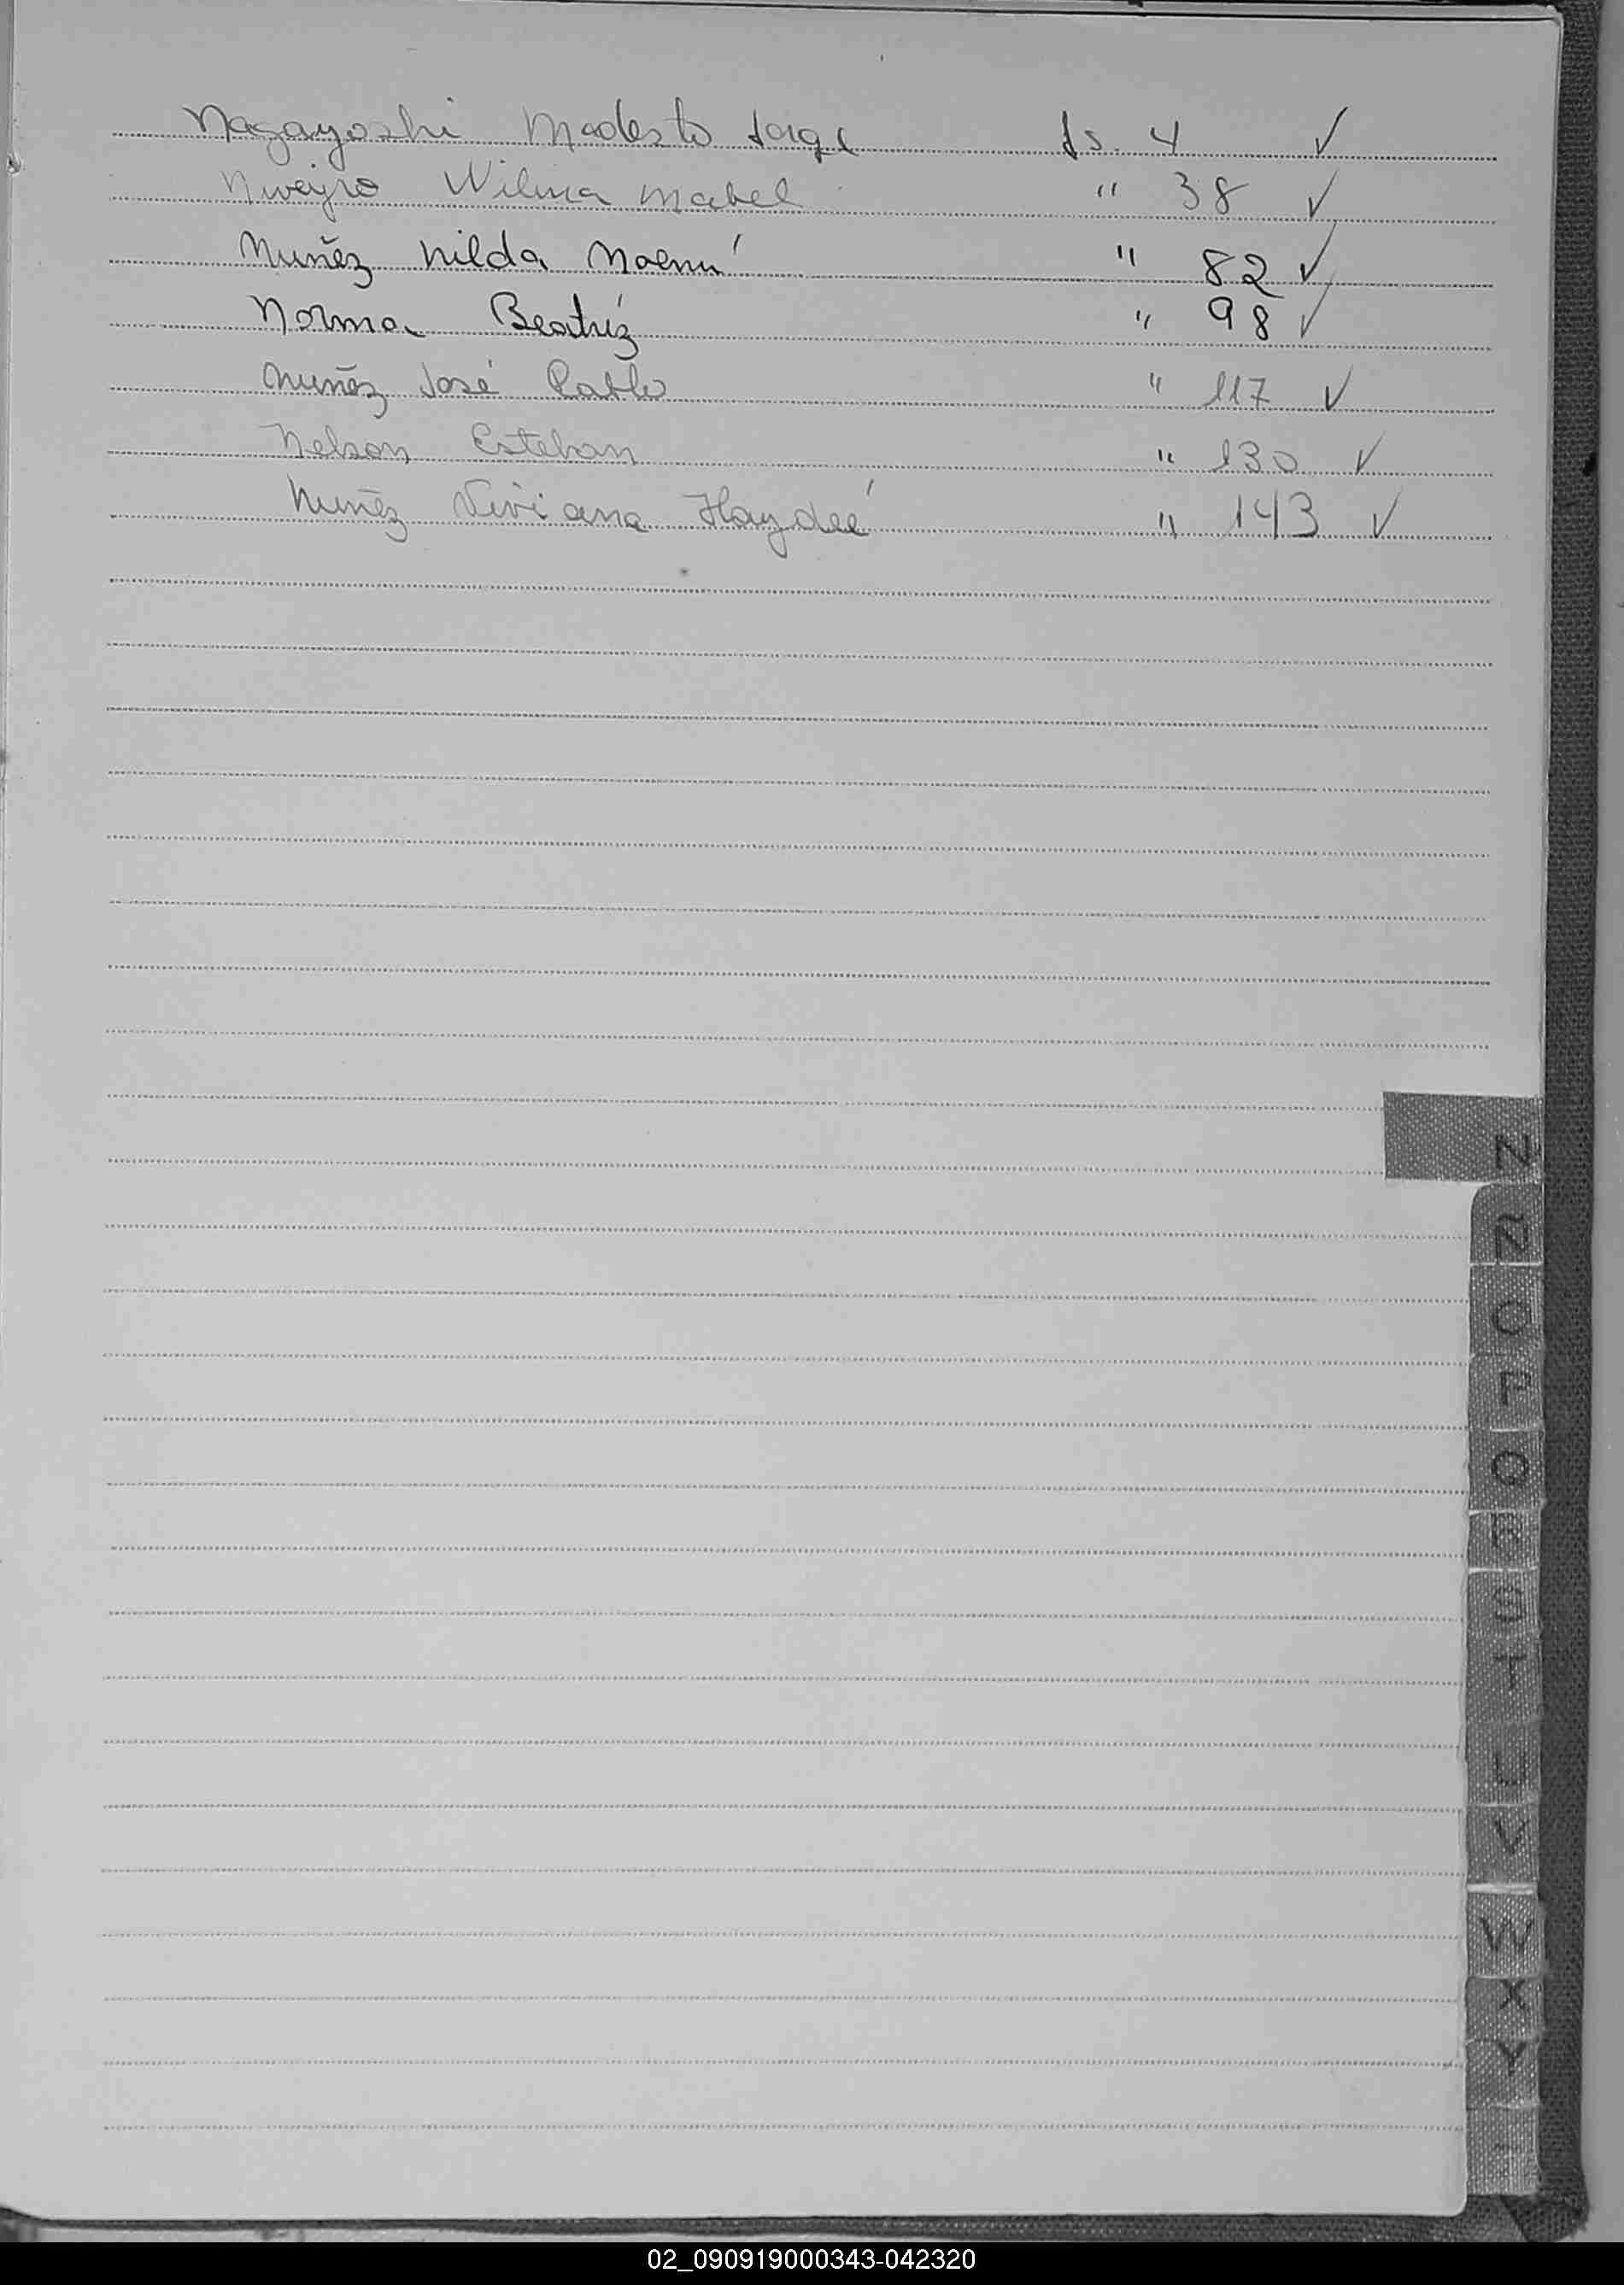 Nagayoshi Modesto Jorge fs. 4 ✓
Niveyro Wilma Mabel " 38 ✓
Nuñez Nilda Noemí " 82 ✓
Norma Beatríz " 98 ✓
Nuñez José Pablo " 117 ✓
Nelson Esteban " 130 ✓
Nuñez Viviana Haydeé " 143 ✓
N
Ñ
O
P
Q
R
S
T
U
V
W
X
Y
02_090919000343-042320